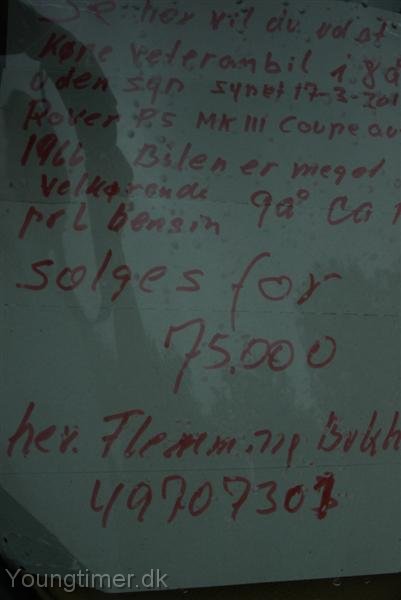 Se her vil du ud at
køre veteranbil i 8 å
uden syn synet 17-3-201
Rover P5 MK III Coupe au
1966 Bilen er meget
velkørende gå ca 1
pr l bensin
sælges for
75.000
hen. Flemming Bukh
49707301
Youngtimer.dk